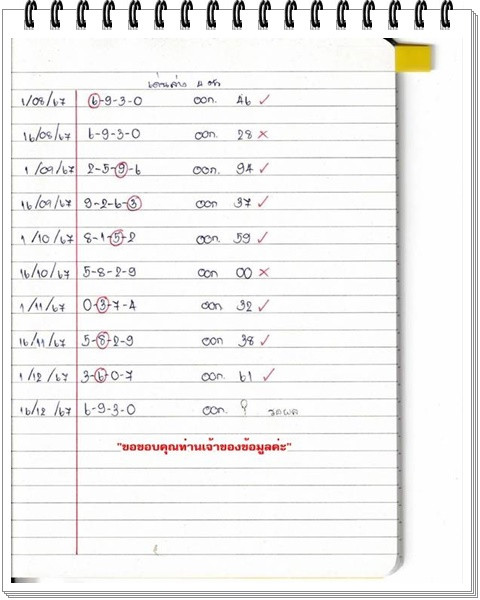 เด่นล่าง 4 ตัว
1/08/67 6-9-3-0 ออก. 46 ✓
16/08/67 6-9-3-0 ออก. 28 ×
1/09/67 2-5-9-6 ออก. 94 ✓
16/09/67 9-2-6-3 ออก 37 ✓
1/10/67 8-1-5-2 ออก. 59 ✓
16/10/67 5-8-2-9 ออก 00 ×
1/11/67 0-3-7-4 ออก. 32 ✓
16/11/67 5-8-2-9 ออก 38 ✓
1/12/67 3-6-0-7 ออก. 61 ✓
16/12/67 6-9-3-0 ออก. ? รอผล
"ขอขอบคุณท่านเจ้าของข้อมูลค่ะ"